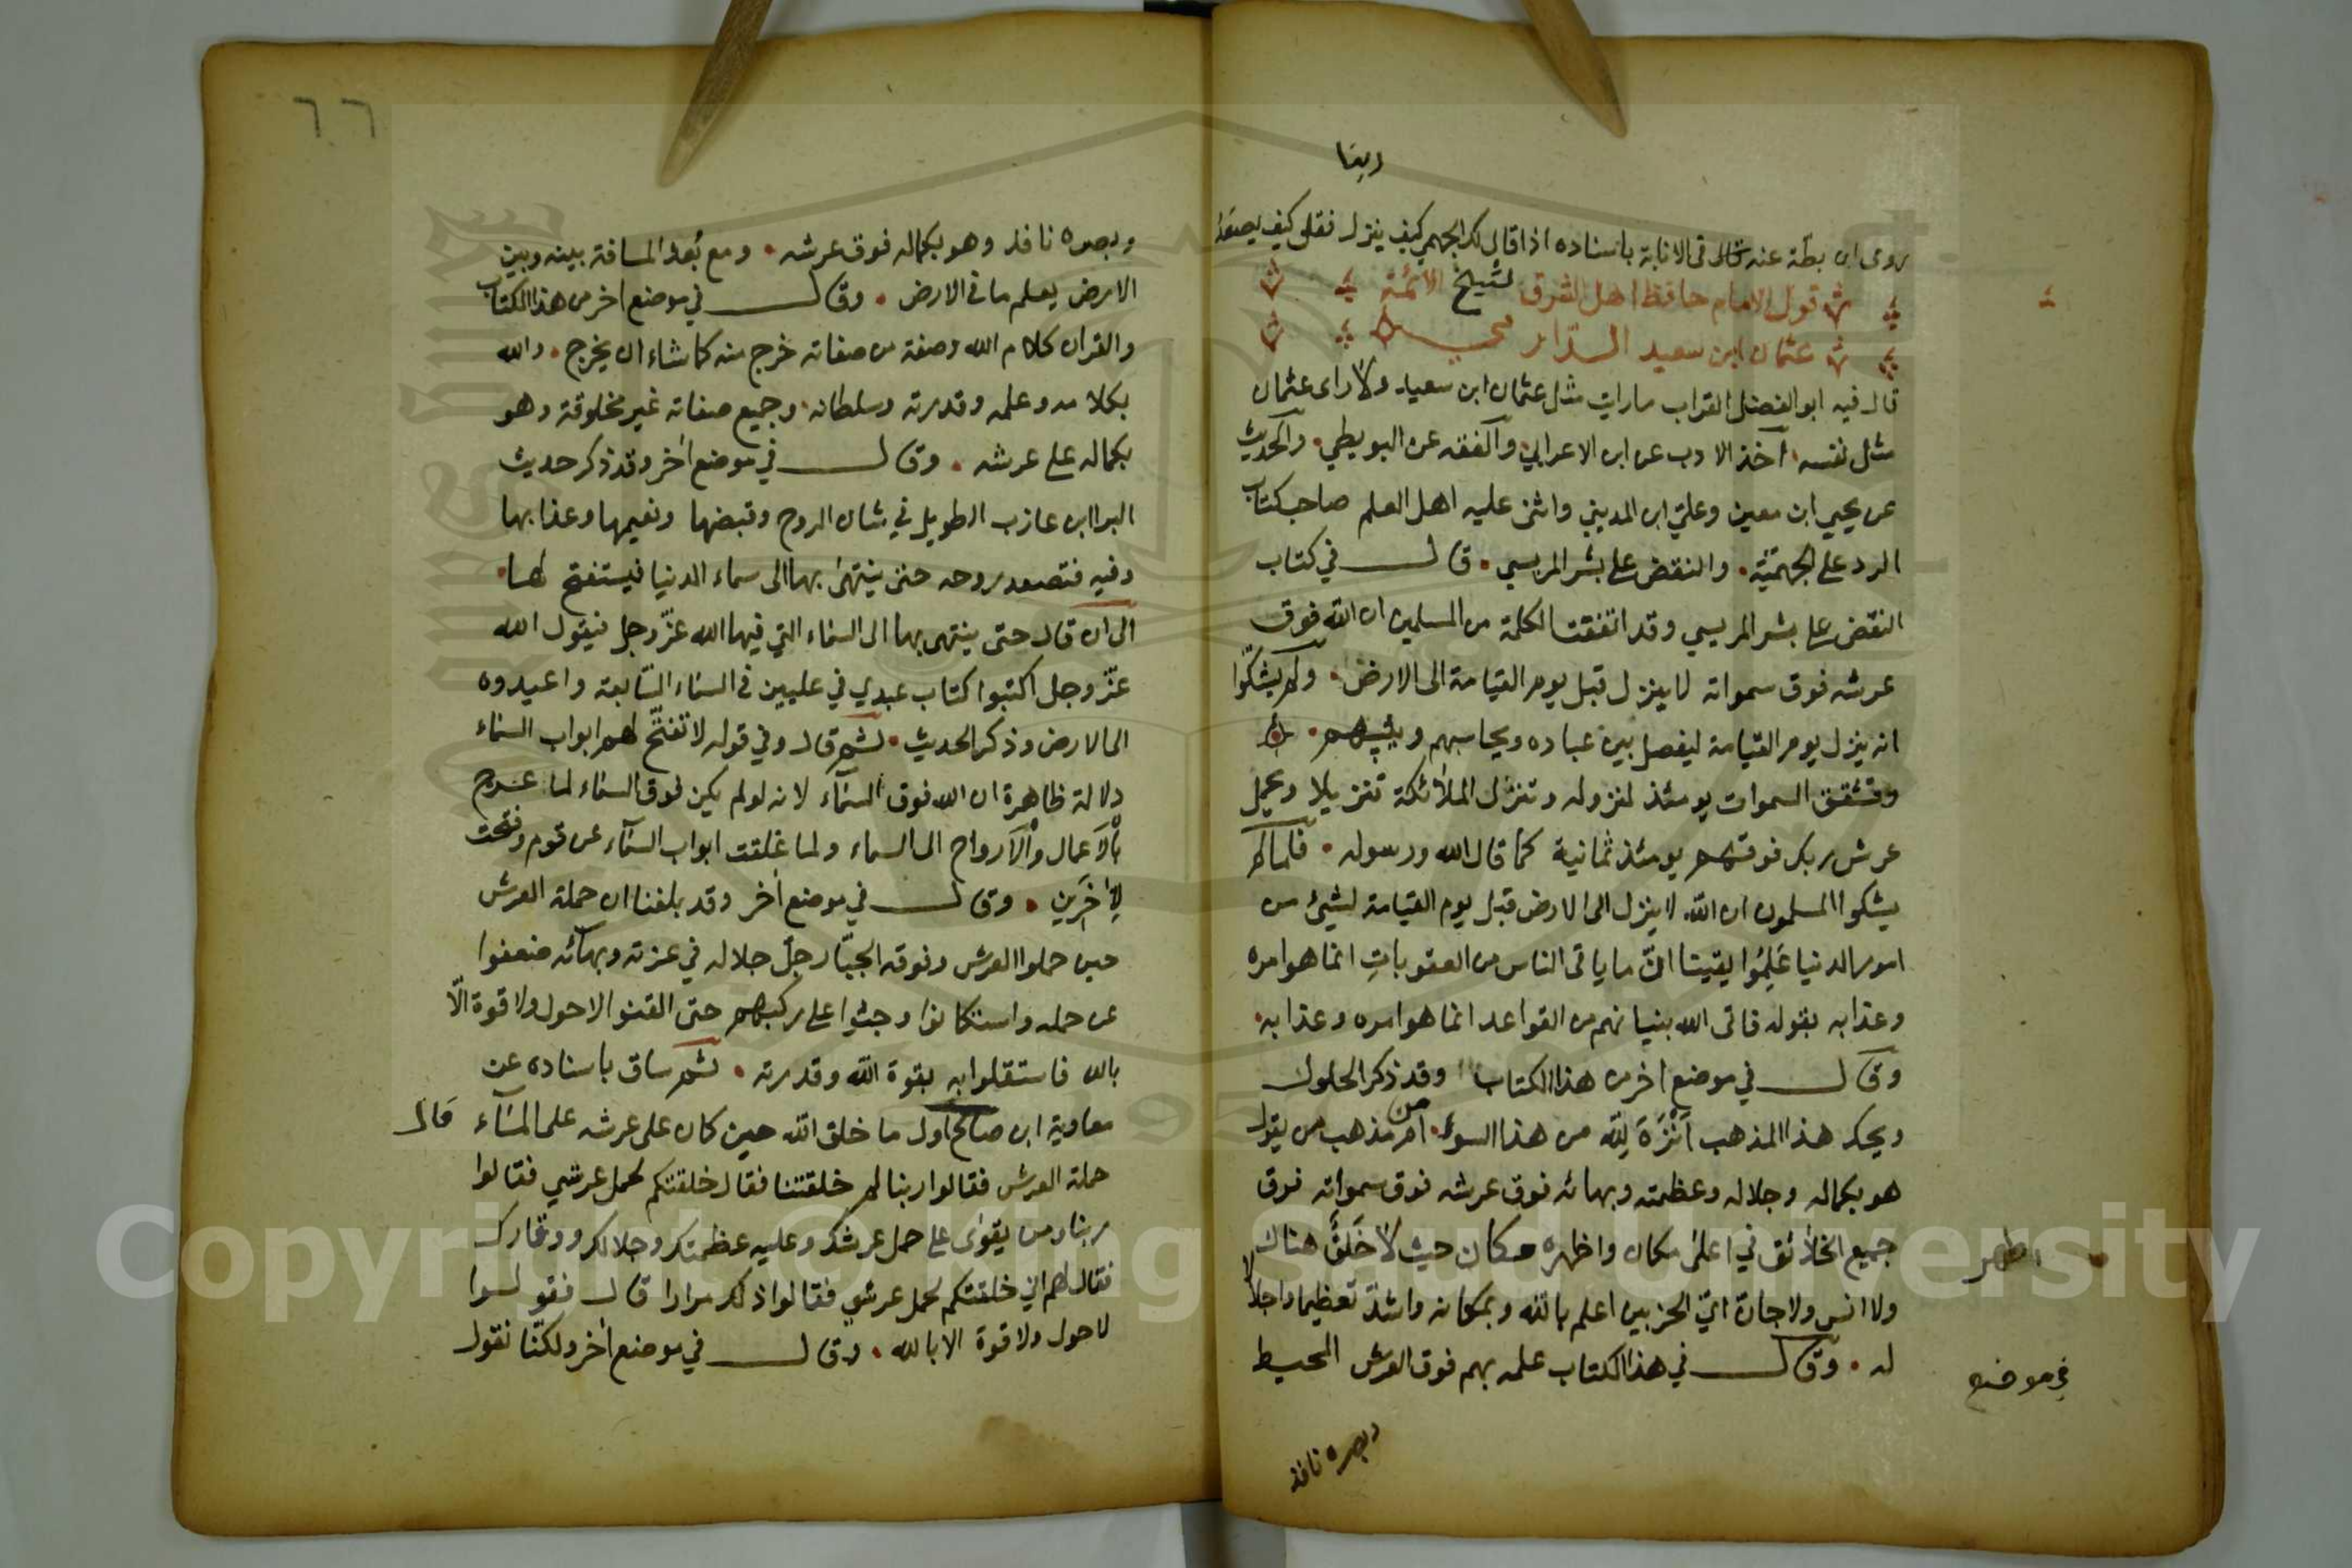 ربنا
روى ابن بطة عنه قال في الابانة باسناده اذا قال لك الجهمي كيف ينزل فقل كيف يصعد
قول الامام حافظ اهل الشرق شيخ الائمة
عثمان ابن سعيد الدارمي
قال فيه ابو الفضل القراب مارايت مثل عثمان ابن سعيد ولا راى عثمان
مثل نفسه اخذ الادب عن ابن الاعرابي والفقه عن البويطي والحديث
عن يحيى ابن معين وعلي ابن المديني واثنى عليه اهل العلم صاحب كتاب
الرد على الجهمية والنقض على بشر المريسي قال في كتاب
النقض على بشر المريسي وقد اتفقت الكلمة من المسلمين ان الله فوق
عرشه فوق سمواته لا ينزل قبل يوم القيامة الى الارض ولم يشكوا
انه ينزل يوم القيامة ليفصل بين عباده ويحاسبهم ويثيبهم
وتشقق السموات يومئذ لنزوله وتنزل الملائكة تنزيلا ويحمل
عرش ربك فوقهم يومئذ ثمانية كما قال الله ورسوله فلما لم
يشكوا المسلمون ان الله لا ينزل الى الارض قبل يوم القيامة لشيئ من
امور الدنيا علموا يقينا ان ما ياتى الناس من العقوبات انما هو امره
وعذابه بقوله فاتى الله بنيانهم من القواعد انما هو امره وعذابه
وقال في موضع اخر من هذا الكتاب وقد ذكر الحلول
ويحك هذا المذهب انزه لله من هذا السوء ام مذهب من يقول
هو بكماله وجلاله وعظمته وبهائه فوق عرشه فوق سمواته فوق
جميع الخلائق في اعلى مكان واظهر مكان حيث لا خلق هناك
اطهر
ولا انس ولا جان اي الحزبين اعلم بالله وبمكانه واشد تعظيما واجلالا
له وقال في هذا الكتاب علمه بهم فوق العرش المحيط
في موضع
وبصره نافذ
٦٦
وبصره نافذ وهو بكماله فوق عرشه ومع بعد المسافة بينه وبين
الارض يعلم ما في الارض وقال في موضع اخر من هذا الكتاب
والقران كلام الله وصفة من صفاته خرج منه كما شاء ان يخرج والله
بكلامه وعلمه وقدرته وسلطانه وجميع صفاته غير مخلوقة وهو
بكماله على عرشه وقال في موضع اخر وقد ذكر حديث
البرا ابن عازب الطويل في شان الروح وقبضها ونعيمها وعذابها
وفيه فتصعد بروحه حتى ينتهى بها الى سماء الدنيا فيستفتح لها
الى ان قال حتى ينتهى بها الى السماء التي فيها الله عز وجل فيقول الله
عز وجل اكتبوا كتاب عبدي في عليين في السماء السابعة واعيدوه
الى الارض وذكر الحديث ثم قال وفي قوله لا تفتح لهم ابواب السماء
دلالة ظاهرة ان الله فوق السماء لانه لو لم يكن فوق السماء لما عرج
بالاعمال والارواح الى السماء ولما غلقت ابواب السماء عن قوم وفتحت
لاخرين وقال في موضع اخر وقد بلغنا ان حملة العرش
حين حملوا العرش وفوقه الجبار جل جلاله في عزته وبهائه ضعفوا
عن حمله واستكانوا وجثوا على ركبهم حتى القنوا لا حول ولا قوة الا
بالله فاستقلوا به بقوة الله وقدرته ثم ساق باسناده عن
معاوية ابن صالح اول ما خلق الله حين كان على عرشه على الماء قال
حملة العرش فقالوا ربنا لم خلقتنا فقال خلقتكم لحمل عرشي فقالوا
ربنا ومن يقوى على حمل عرشك وعليه عظمتك وجلالك ووقارك
فقال لهم اني خلقتكم لحمل عرشي فقالوا ذلك مرارا قال فقولوا
لا حول ولا قوة الا بالله وقال في موضع اخر ولكنا نقول
Copyright © King Saud University